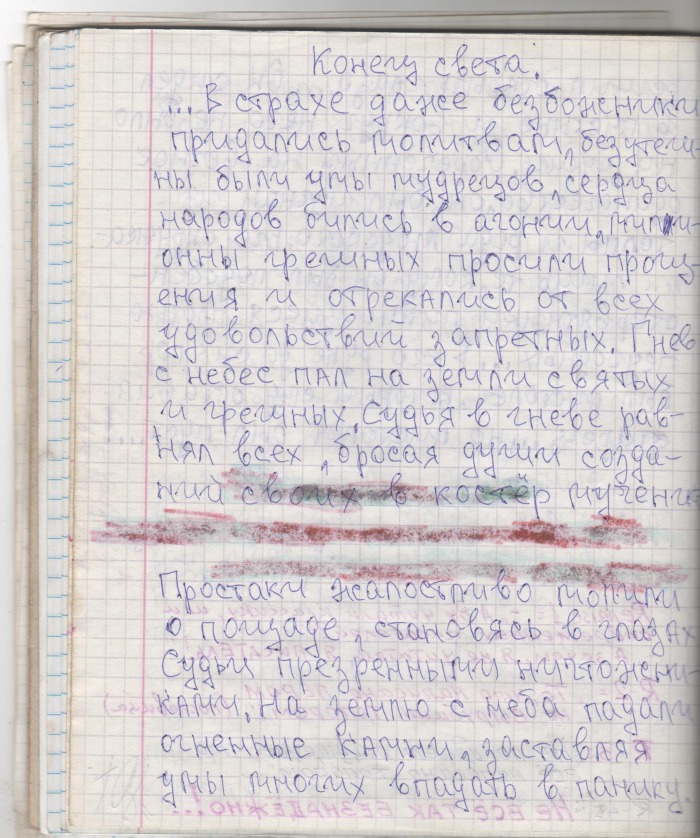 Конец света.
...В страхе даже безбожники
придались молитвам, безутеш-
ны были умы мудрецов, сердца
народов бились в агонии, милли-
онны грешных просили прощ-
ения и отрекались от всех
удовольствий запретных. Гнев
с небес пал на земли святых
и грешных, Судья в гневе рав-
нял всех, бросая души созда-
ний своих в костёр мучени-
Простаки жалостливо молили
о пощаде, становясь в глазах
Судьи презренными ничтожни-
ками, На землю с неба падали
огненные камни, заставляя
умы многих впадать в панику.
НЕ ВСЕ ТАК БЕЗНАДЁЖНО!...